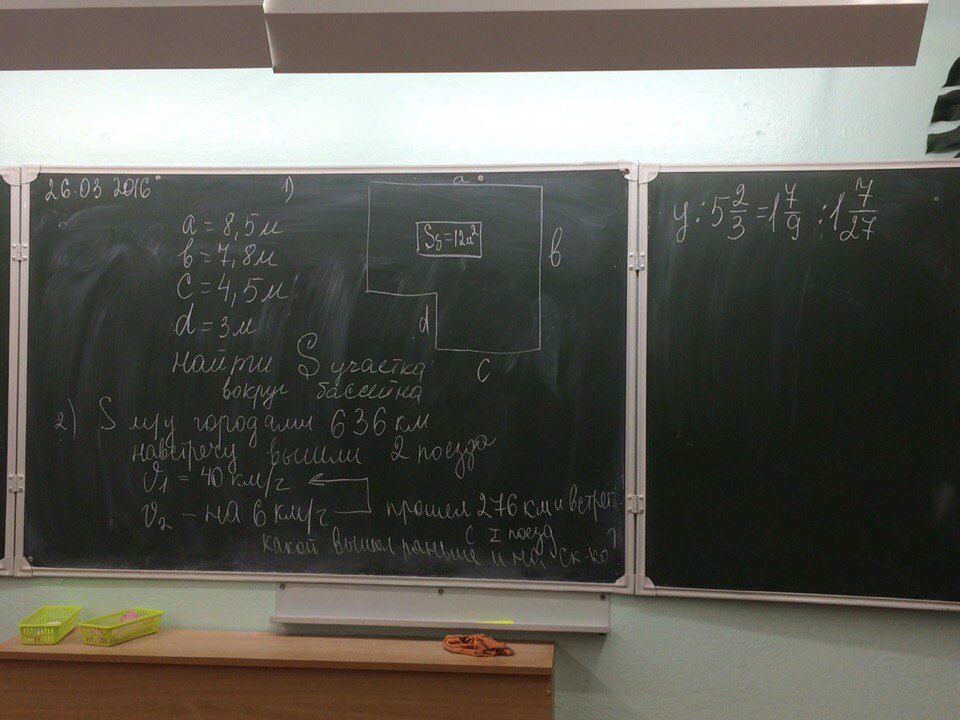 26.03 2016
1)
a
a = 8,5м
в = 7,8м
c = 4,5м
d = 3м
Sб = 12м²
в
d
c
найти S участка
вокруг бассейна
2) S м/у городами 636 км
навстречу вышли 2 поезда
V₁ = 40 км/г
V₂ – на 6 км/г прошел 276 км и встрет.
с I поезд
какой вышел раньше и на ск-ко ?
y : 5 2/3 = 1 7/9 : 1 7/27